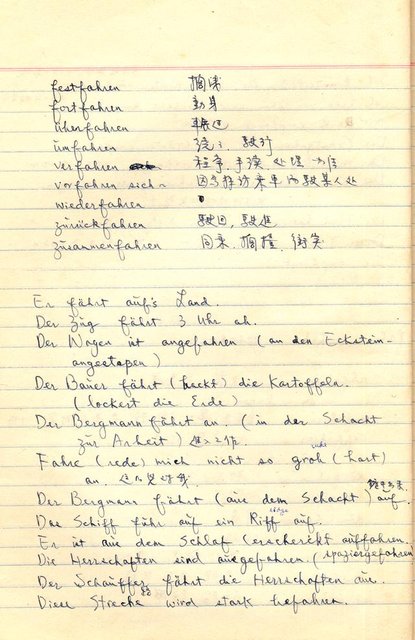 festfahren 擱淺
fortfahren 動身
überfahren 輾過
umfahren 繞, 駛行
verfahren 程序, 手續, 处理
verfahren sich
wiederfahren
zurückfahren 駛回, 駛進
zusammenfahren 同乘, 擱撞, 衝突
Er fährt aufs Land.
Der Zug fährt 3 Uhr ab.
Der Wagen ist angefahren (an den Eckstein-
angestopen)
Der Bauer fährt (hackt) die Kartoffeln.
(lockert die Erde)
Der Bergmann fährt an. (in der Schacht
zur Arbeit) 進入工作
Fahre (rede) mich nicht so grob (hart)
an.
Der Bergmann fährt (aus dem Schacht) auf.
Das Schiff fähr auf ein Riff auf.
Er ist aus dem Schlaf (erschreckt auffahren.
Die Herrschaften sind ausgefahren. (spaziergefahren
Der Schauffer fährt die Herrschaften aus.
Diese Strecke wird stark befahren.